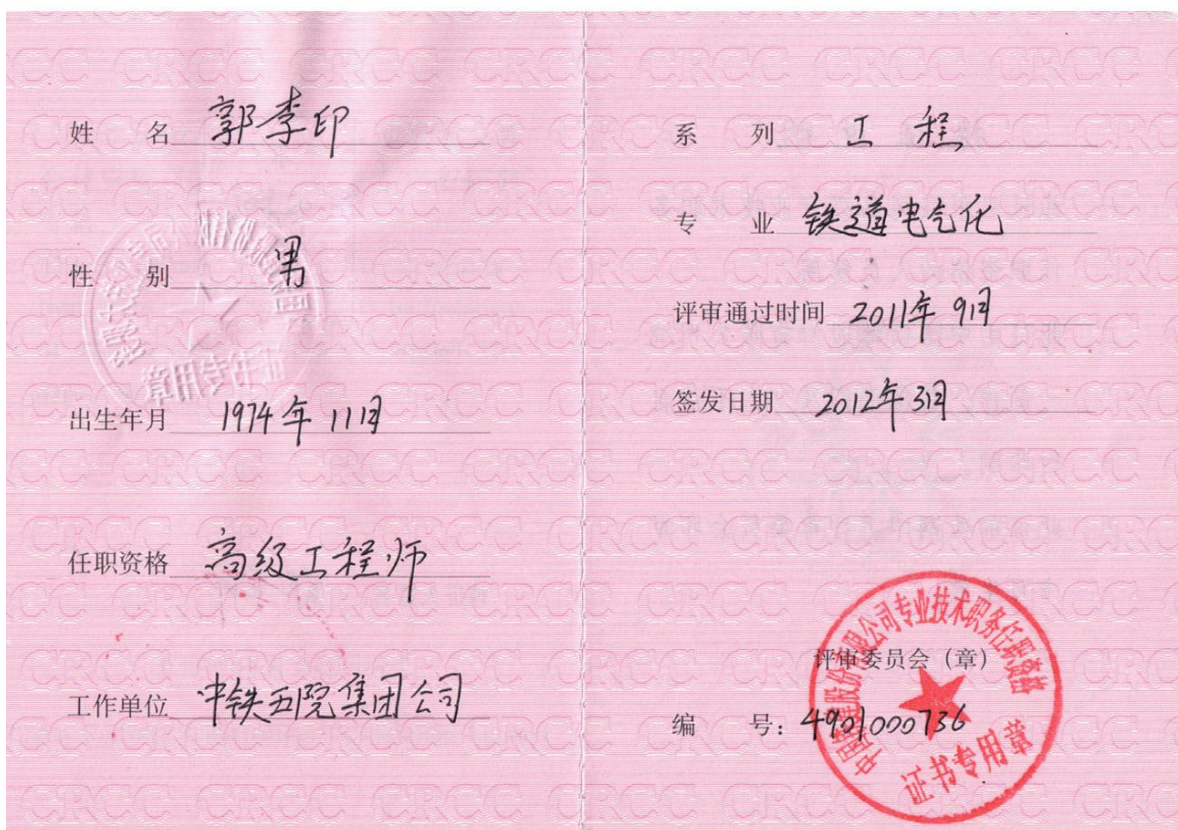 姓 名 郭李印
性 别 男
出生年月 1974年11月
任职资格 高级工程师
工作单位 中铁五院集团公司
系 列 工程
专 业 铁道电气化
评审通过时间 2011年9月
签发日期 2012年3月
评审委员会（章）
编 号：4901000736
中国铁建股份有限公司专业技术职务任职资格
证书专用章
CRCC